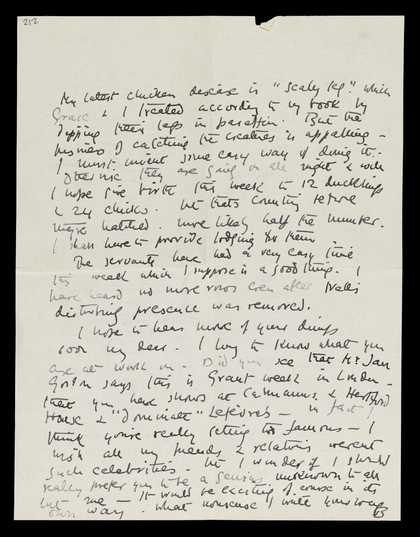 212
My latest chicken disease is "scaly leg." which
Grace & I treated according to my book by
dipping their legs in paraffin. But the
business of catching the creatures is appalling -
I must invent some easy way of doing it -
Otherwise they are going on all right & with
I hope give birth this week to 12 ducklings
& 24 chicks. but thats counting before
they're hatched. more likely half the number.
I shall have to provide lodging for them.
The servants have had a very easy time
this week which I suppose is a good thing. I
have heard no more rows even after
disturbing presence was removed.
I hope to hear more of your doings
soon my dear. I long to know what you
are at work on. Did you see that Mr Jan
Gordon says this is Grant week in London -
that you have shows at & Hertford
House & "Dominate" Lefevres - in fact I
think you're really getting too famous - I
wish all my friends & relations werent
such celebrities - but I wonder if I should
really prefer you to be a genius unknown to all
but me - It would be exciting of course in its
own way. What nonsense I write you